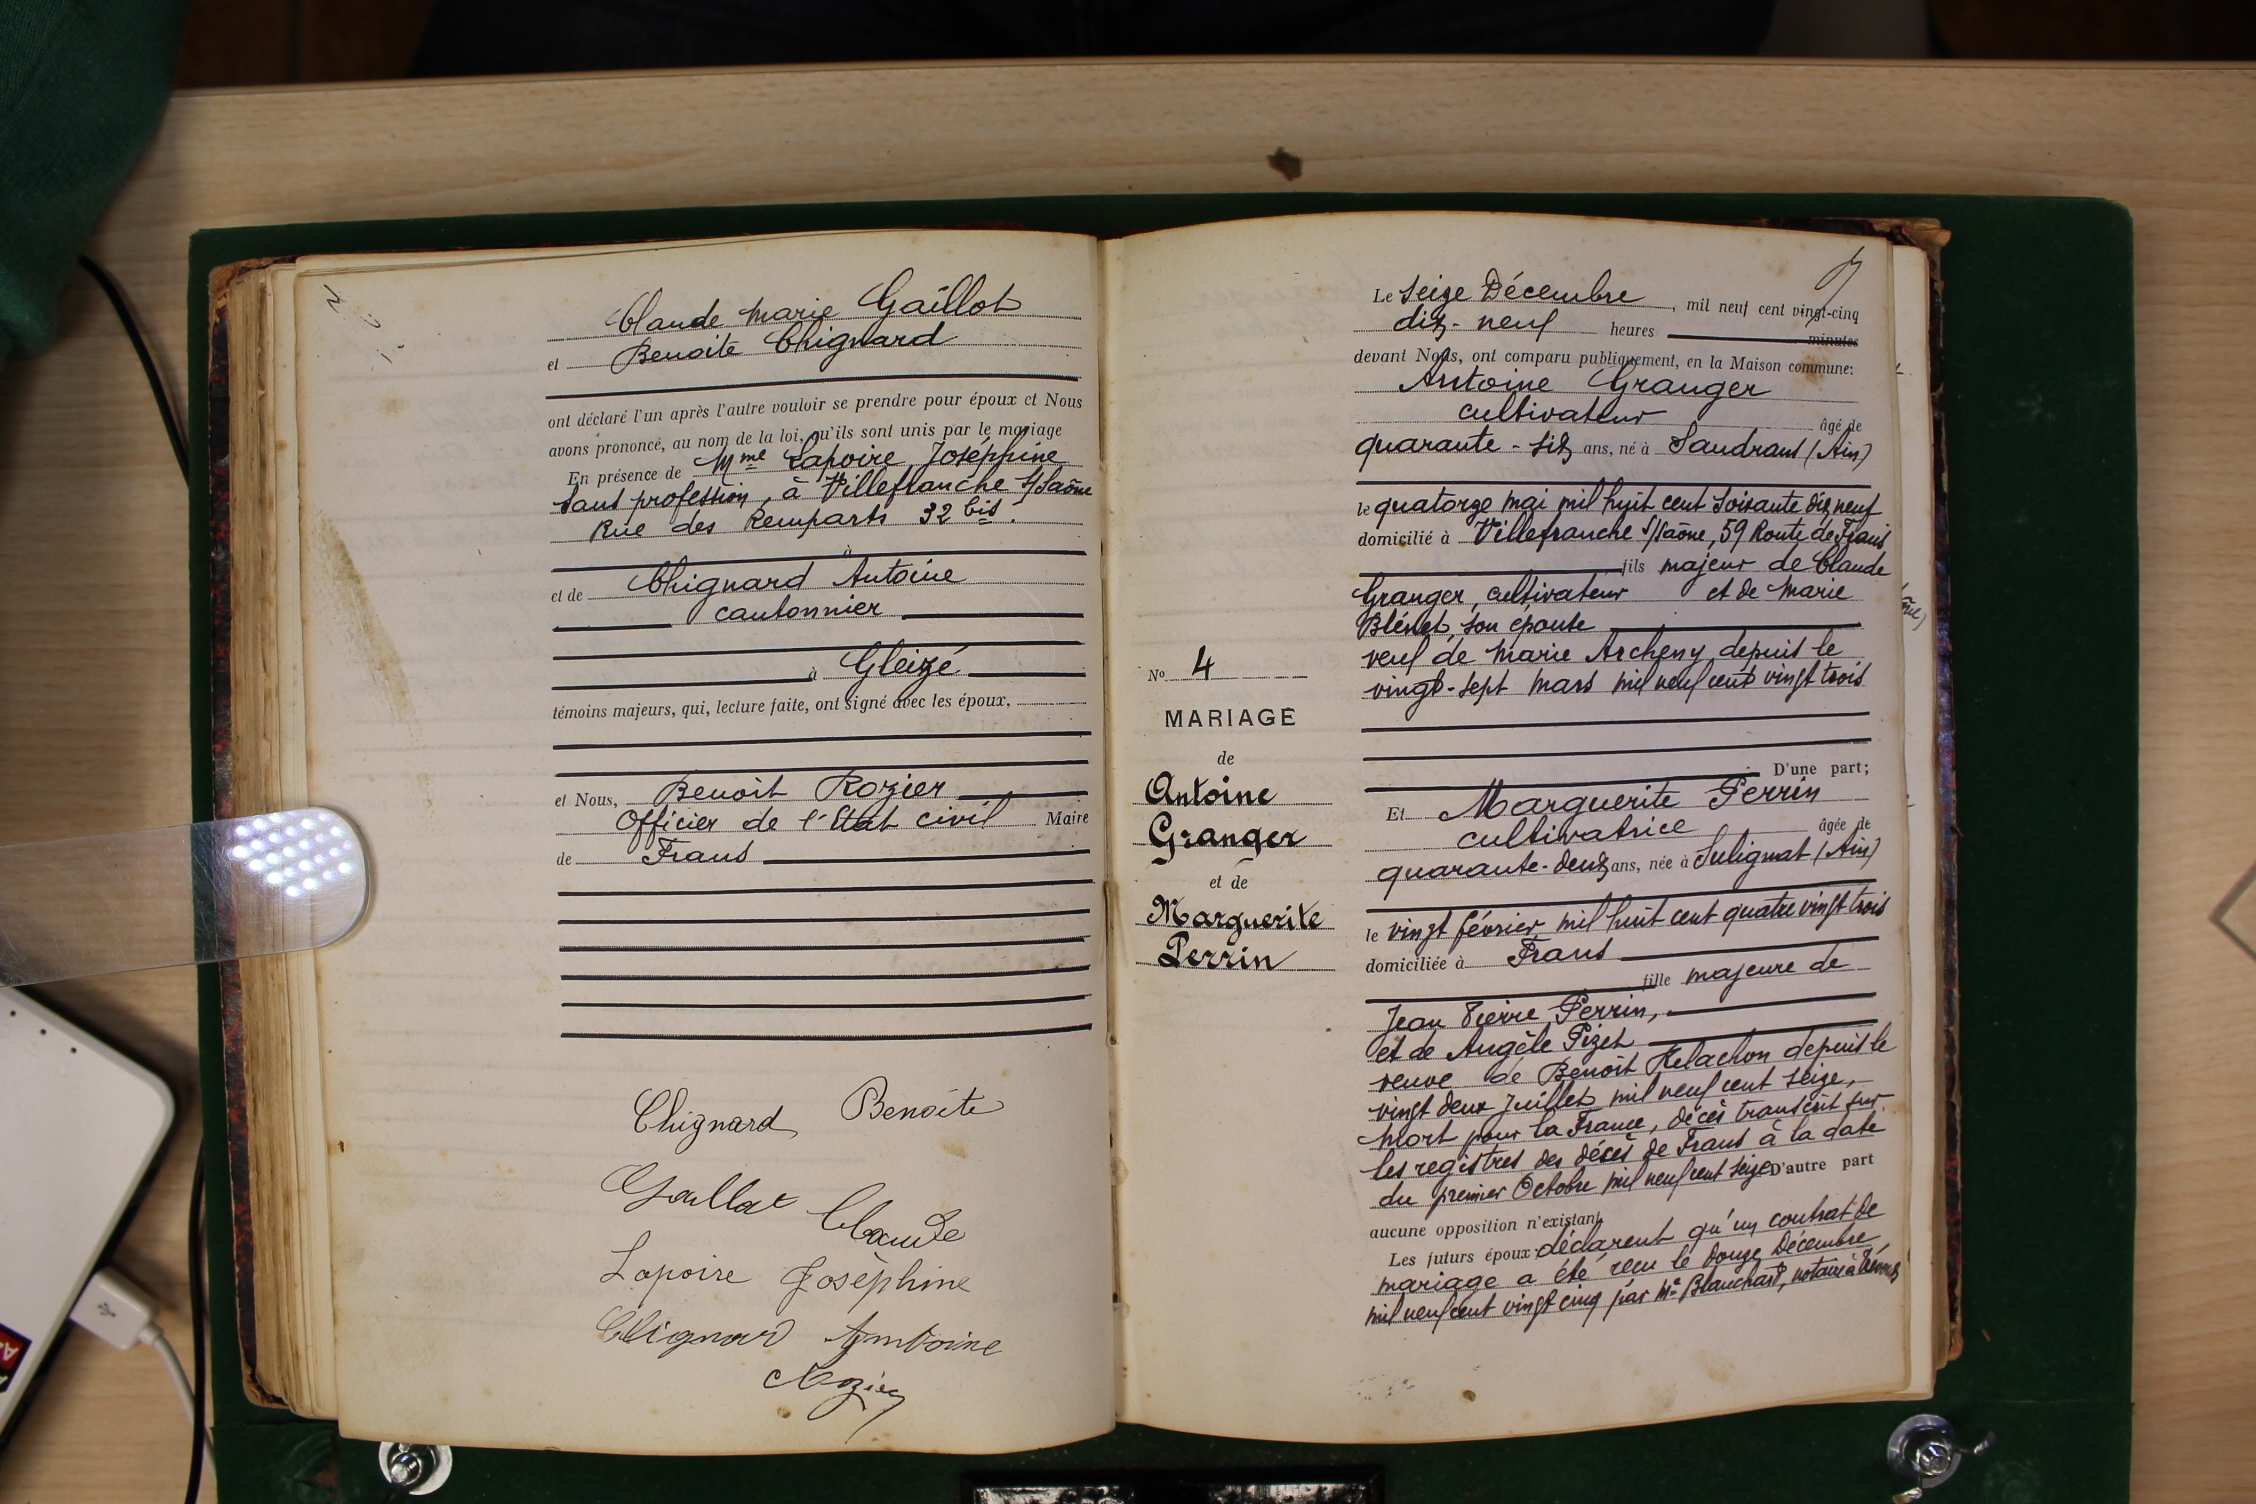 Claude Marie Gaillot
et Benoite Chignard
ont déclaré l'un après l'autre vouloir se prendre pour époux et Nous
avons prononcé, au nom de la loi, qu'ils sont unis par le mariage
En présence de Mme Lapoire Joséphine
sans profession, à Villefranche s/Saône
Rue des Remparts 32 bis.
à
et de Chignard Antoine
cantonnier
à Gleizé
témoins majeurs, qui, lecture faite, ont signé avec les époux,
et Nous, Benoit Rozier
Officier de l'Etat civil Maire
de Frans
Chignard Benoite
Gaillot Claude
Lapoire Joséphine
Chignard Antoine
Rozier
No 4
MARIAGE
de
Antoine
Granger
et de
Marguerite
Perrin
Le seize Décembre, mil neuf cent vingt-cinq
dix-neuf heures minutes
devant Nous, ont comparu publiquement, en la Maison commune:
Antoine Granger
cultivateur âgé de
quarante-six ans, né à Sandrans (Ain)
le quatorze mai mil huit cent soixante dix neuf
domicilié à Villefranche s/Saône, 59 Route de Frans
fils majeur de Claude
Granger, cultivateur et de Marie
Blénet, son épouse
veuf de Marie Archeny depuis le
vingt-sept mars mil neuf cent vingt trois
D'une part;
Et Marguerite Perrin
cultivatrice âgée de
quarante-deux ans, née à Sulignat (Ain)
le vingt février mil huit cent quatre vingt trois
domiciliée à Frans
fille majeure de
Jean Pierre Perrin,
et de Angèle Pizet
veuve de Benoit Relachon depuis le
vingt deux juillet mil neuf cent seize,
mort pour la France, décès transcrit sur
les registres des décès de Frans à la date
du premier Octobre mil neuf cent seize D'autre part
aucune opposition n'existant
Les futurs époux déclarent qu'un contrat de
mariage a été reçu le douze Décembre
mil neuf cent vingt cinq par Me Blanchard, notaire à